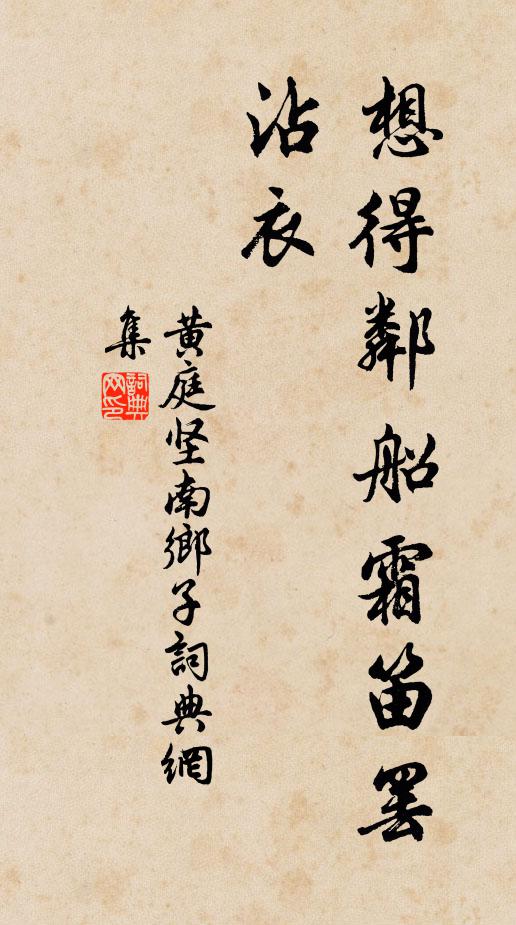 想得鄰船霜笛罢
沾衣
黄庭坚南鄉子詞典網
集
詞典
网印